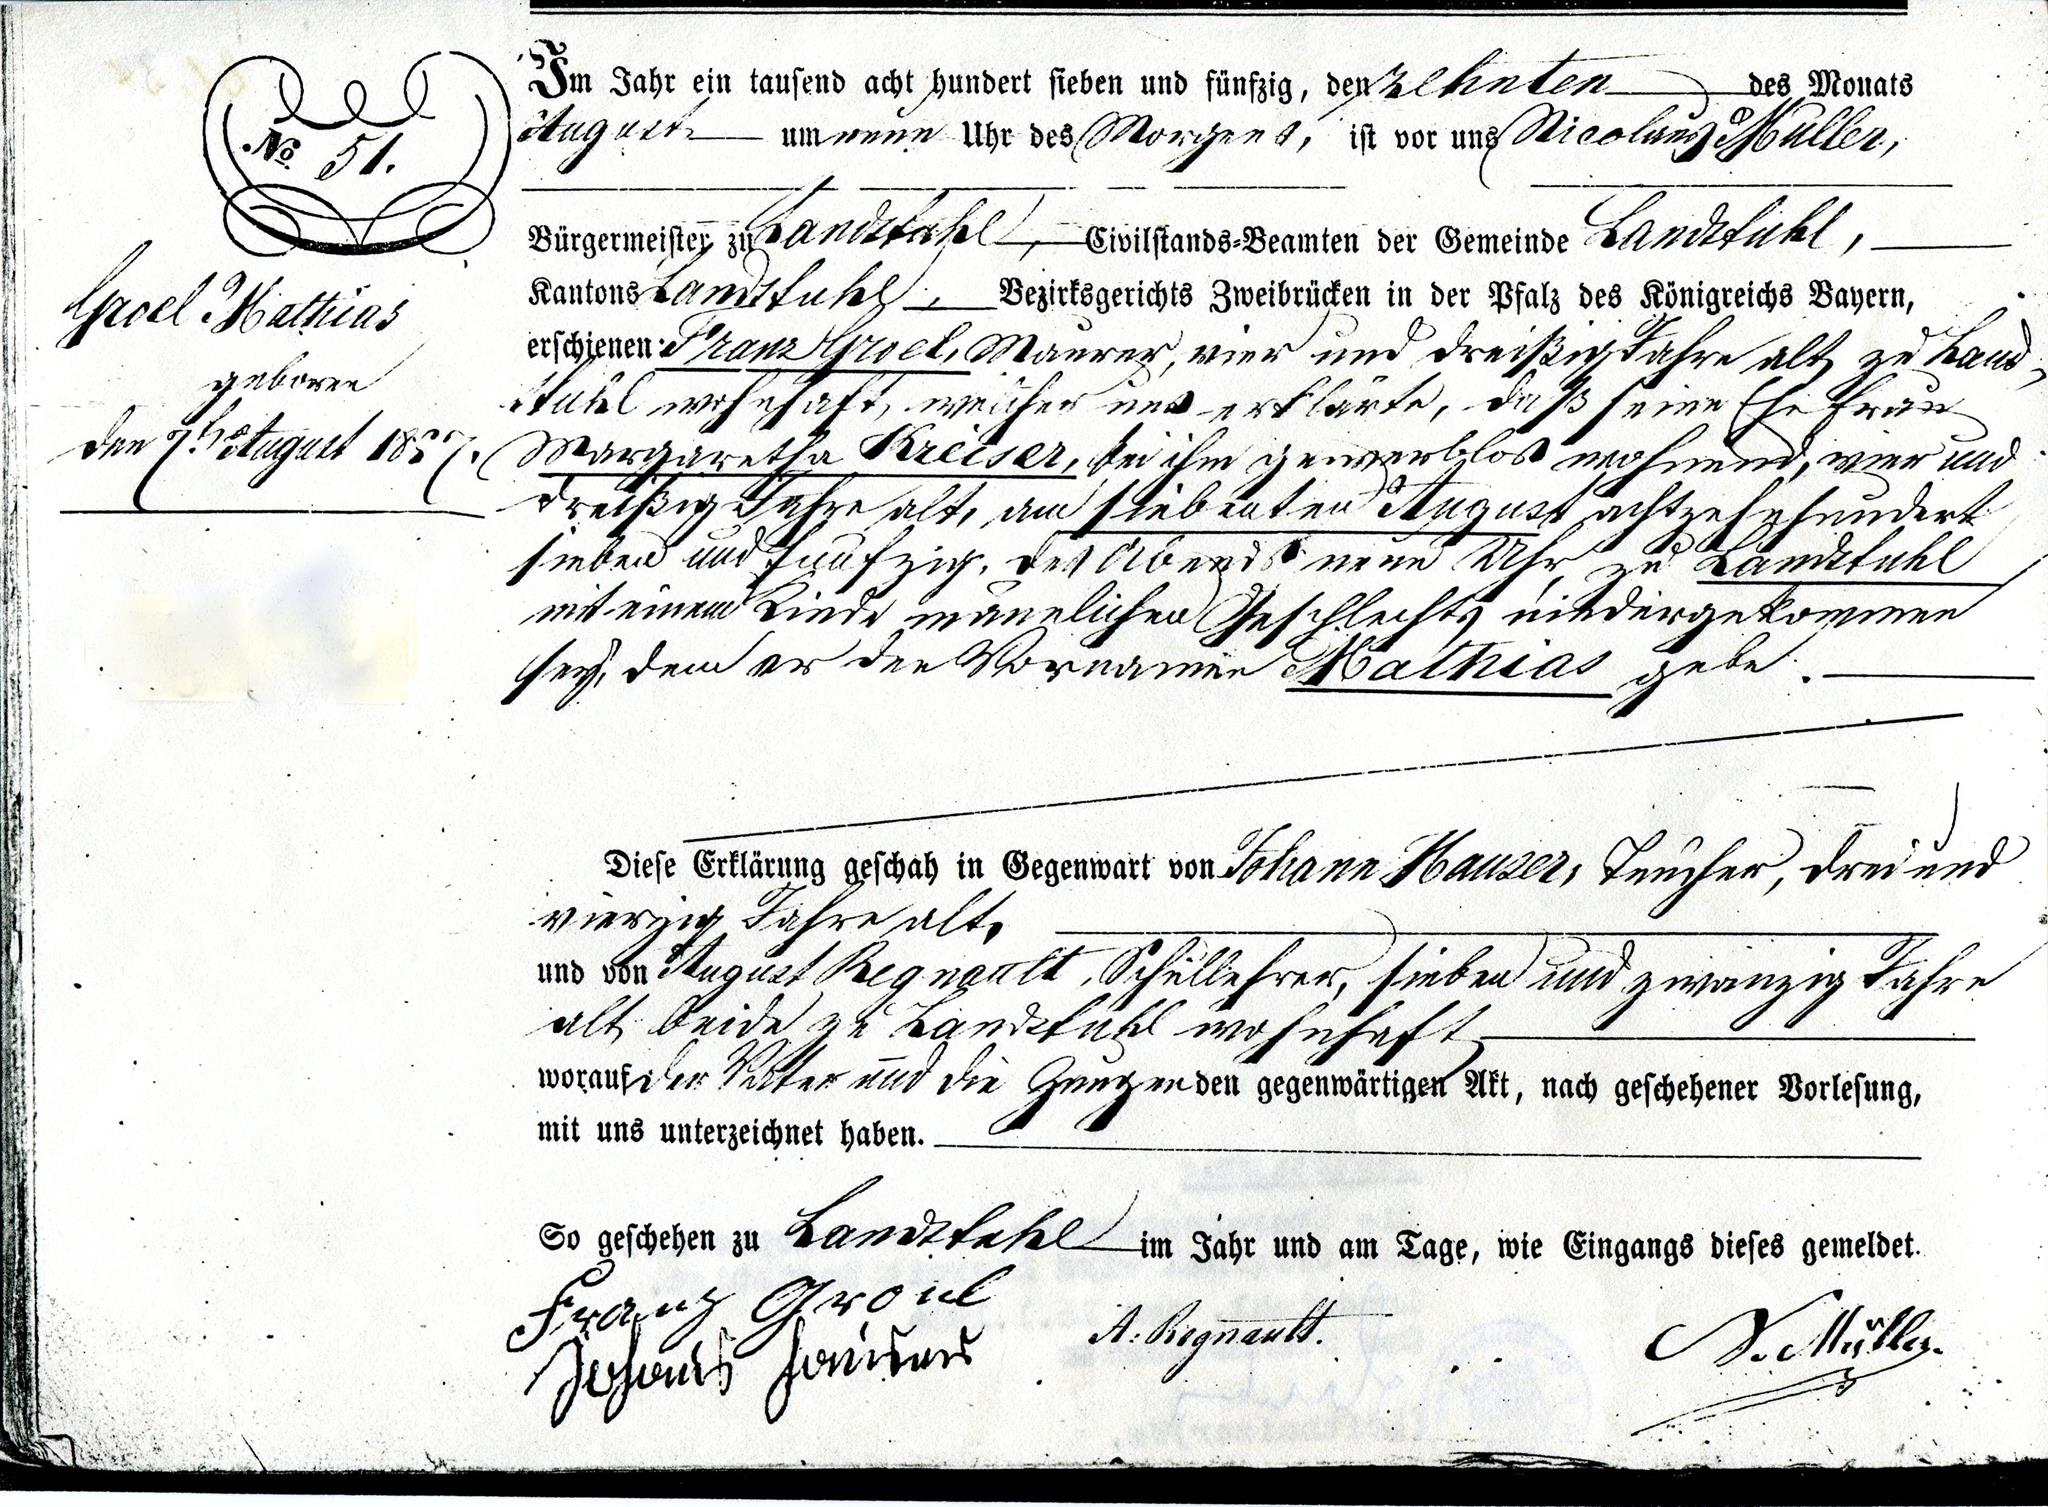 No 51.
Groel Mathias
geboren
den 7ten August 1857.
Im Jahr ein tausend acht hundert sieben und fünfzig, den zehnten des Monats
August um neun Uhr des Morgens, ist vor uns Nicolaus Müller,
Bürgermeister zu Landstuhl, Civilstands-Beamten der Gemeinde Landstuhl,
Kantons Landstuhl, Bezirksgerichts Zweibrücken in der Pfalz des Königreichs Bayern,
erschienen: Franz Groel, Maurer, vier und dreißig Jahre alt, zu Land-
stuhl wohnhaft, welcher uns erklärte, daß seine Ehefrau
Margaretha Kreiser, bei ihm gewerblos wohnend, vier und
dreißig Jahre alt, am siebenten August achtzehnhundert
sieben und fünfzig, des Abends neun Uhr, zu Landstuhl
mit einem Kinde männlichen Geschlechts niedergekommen
sey, dem er den Vornamen Mathias gebe.
Diese Erklärung geschah in Gegenwart von Johann Hauser, Tüncher, drei und
vierzig Jahre alt,
und von August Regnault, Schullehrer, sieben und zwanzig Jahre
alt, beide zu Landstuhl wohnhaft
worauf der Vater und die Zeugen den gegenwärtigen Akt, nach geschehener Vorlesung,
mit uns unterzeichnet haben.
So geschehen zu Landstuhl im Jahr und am Tage, wie Eingangs dieses gemeldet.
Franz Groel
A. Regnault.
N. Müller.